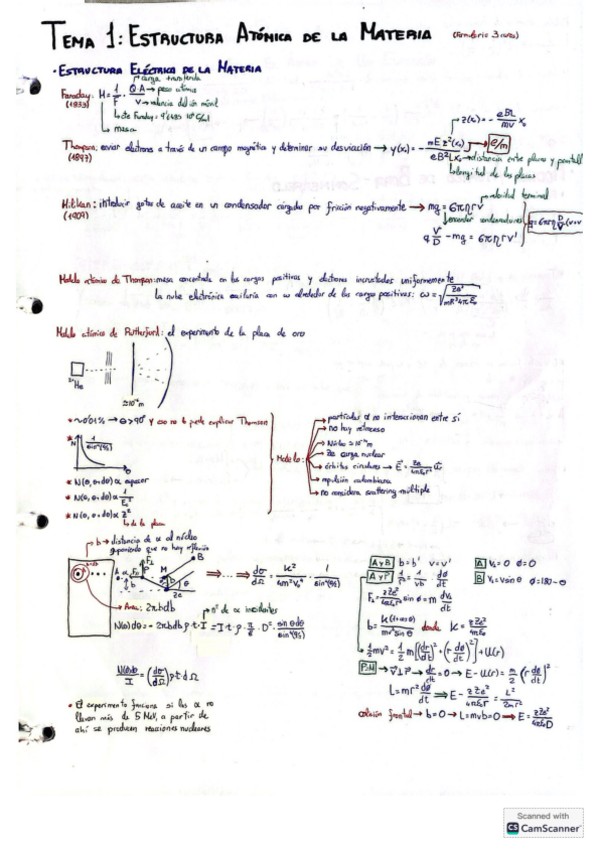 TEMA 1: ESTRUCTURA ATÓMICA DE LA MATERIA (Formulario 3 caras)
· ESTRUCTURA ELÉCTRICA DE LA MATERIA
carga transferida
Faraday: M = 1/F · Q·A/V → peso atómico
(1833) V → valencia del ión móvil
masa
Thompson: enviar electrones a través de un campo magnético y determinar su desviación → y(x₀) = - mEz²(x₀)/eB²Lx₀ → e/m
(1897) z(x₀) = - eBL/mv x₀
distancia entre placas y pantalla
longitud de las placas
Millikan: introducir gotas de aceite en un condensador cargado por fricción negativamente → mg = 6πηrv
(1909)
velocidad terminal
encender condensadores
q V/D - mg = 6πηrv'
Modelo atómico de Thompson: masa concentrada en las cargas positivas y electrones incrustados uniformemente
la nube electrónica oscilaría con ω alrededor de las cargas positivas: ω =
Modelo atómico de Rutherford: el experimento de la placa de oro
⁴He
* ~0'01% → θ > 90° y eso no lo puede explicar Thomson
* N
1/sin⁴(θ/2)
θ
* N(θ, θ+dθ) α espesor
* N(θ, θ+dθ) α 1/E²
* N(θ, θ+dθ) α Z²
de la placa
Modelo:
partículas α no interaccionan entre sí
no hay retroceso
Núcleo ≈ 10⁻¹⁴m
Ze carga nuclear
órbitas circulares →
repulsión coulombiana
no considera scattering múltiple
b → distancia de α al núcleo
suponiendo que no hay repulsión
Área: 2πbdb
nº de α incidentes
dσ/dΩ = K²/4m²V₀⁴ · 1/sin⁴(θ/2)
N(θ)dθ/I = (dσ/dΩ)ρt dΩ
• El experimento funciona si las α no
llevan más de 5 MeV, a partir de
ahí se producen reacciones nucleares
A y B b = b' v = v'
A y P 1/r² = 1/vb dφ/dt
A V⊥ = 0 φ = 0
B V⊥ = v sin θ φ = 180 - θ
F⊥ = zZe²/4πε₀r² sin φ = m dV⊥/dt
b = K(1+cosθ)/mv² sin θ donde K = zZe²/4πε₀
½mv² = ½m[(dr/dt)² + (r dφ/dt)²] + U(r)
→ v⃗⊥r⃗ → dr/dt = 0 → E - U(r) = m/2 (r dφ/dt)²
L = mr² dφ/dt ⇒ E - zZe²/4πε₀r = L²/2mr²
colisión frontal → b = 0 → L = mvb = 0 → E = zZe²/4πε₀D
Scanned with
CS CamScanner